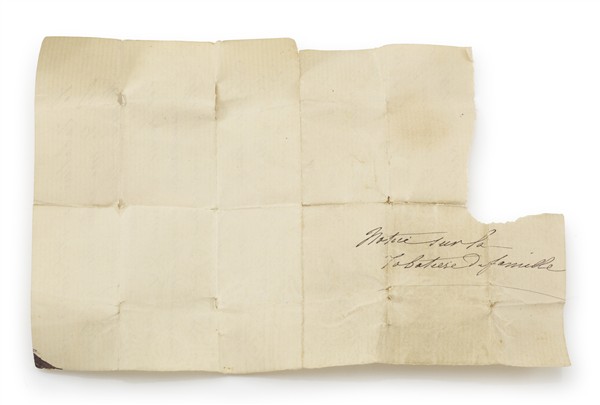 Notice sur la
Tabatiere de famille